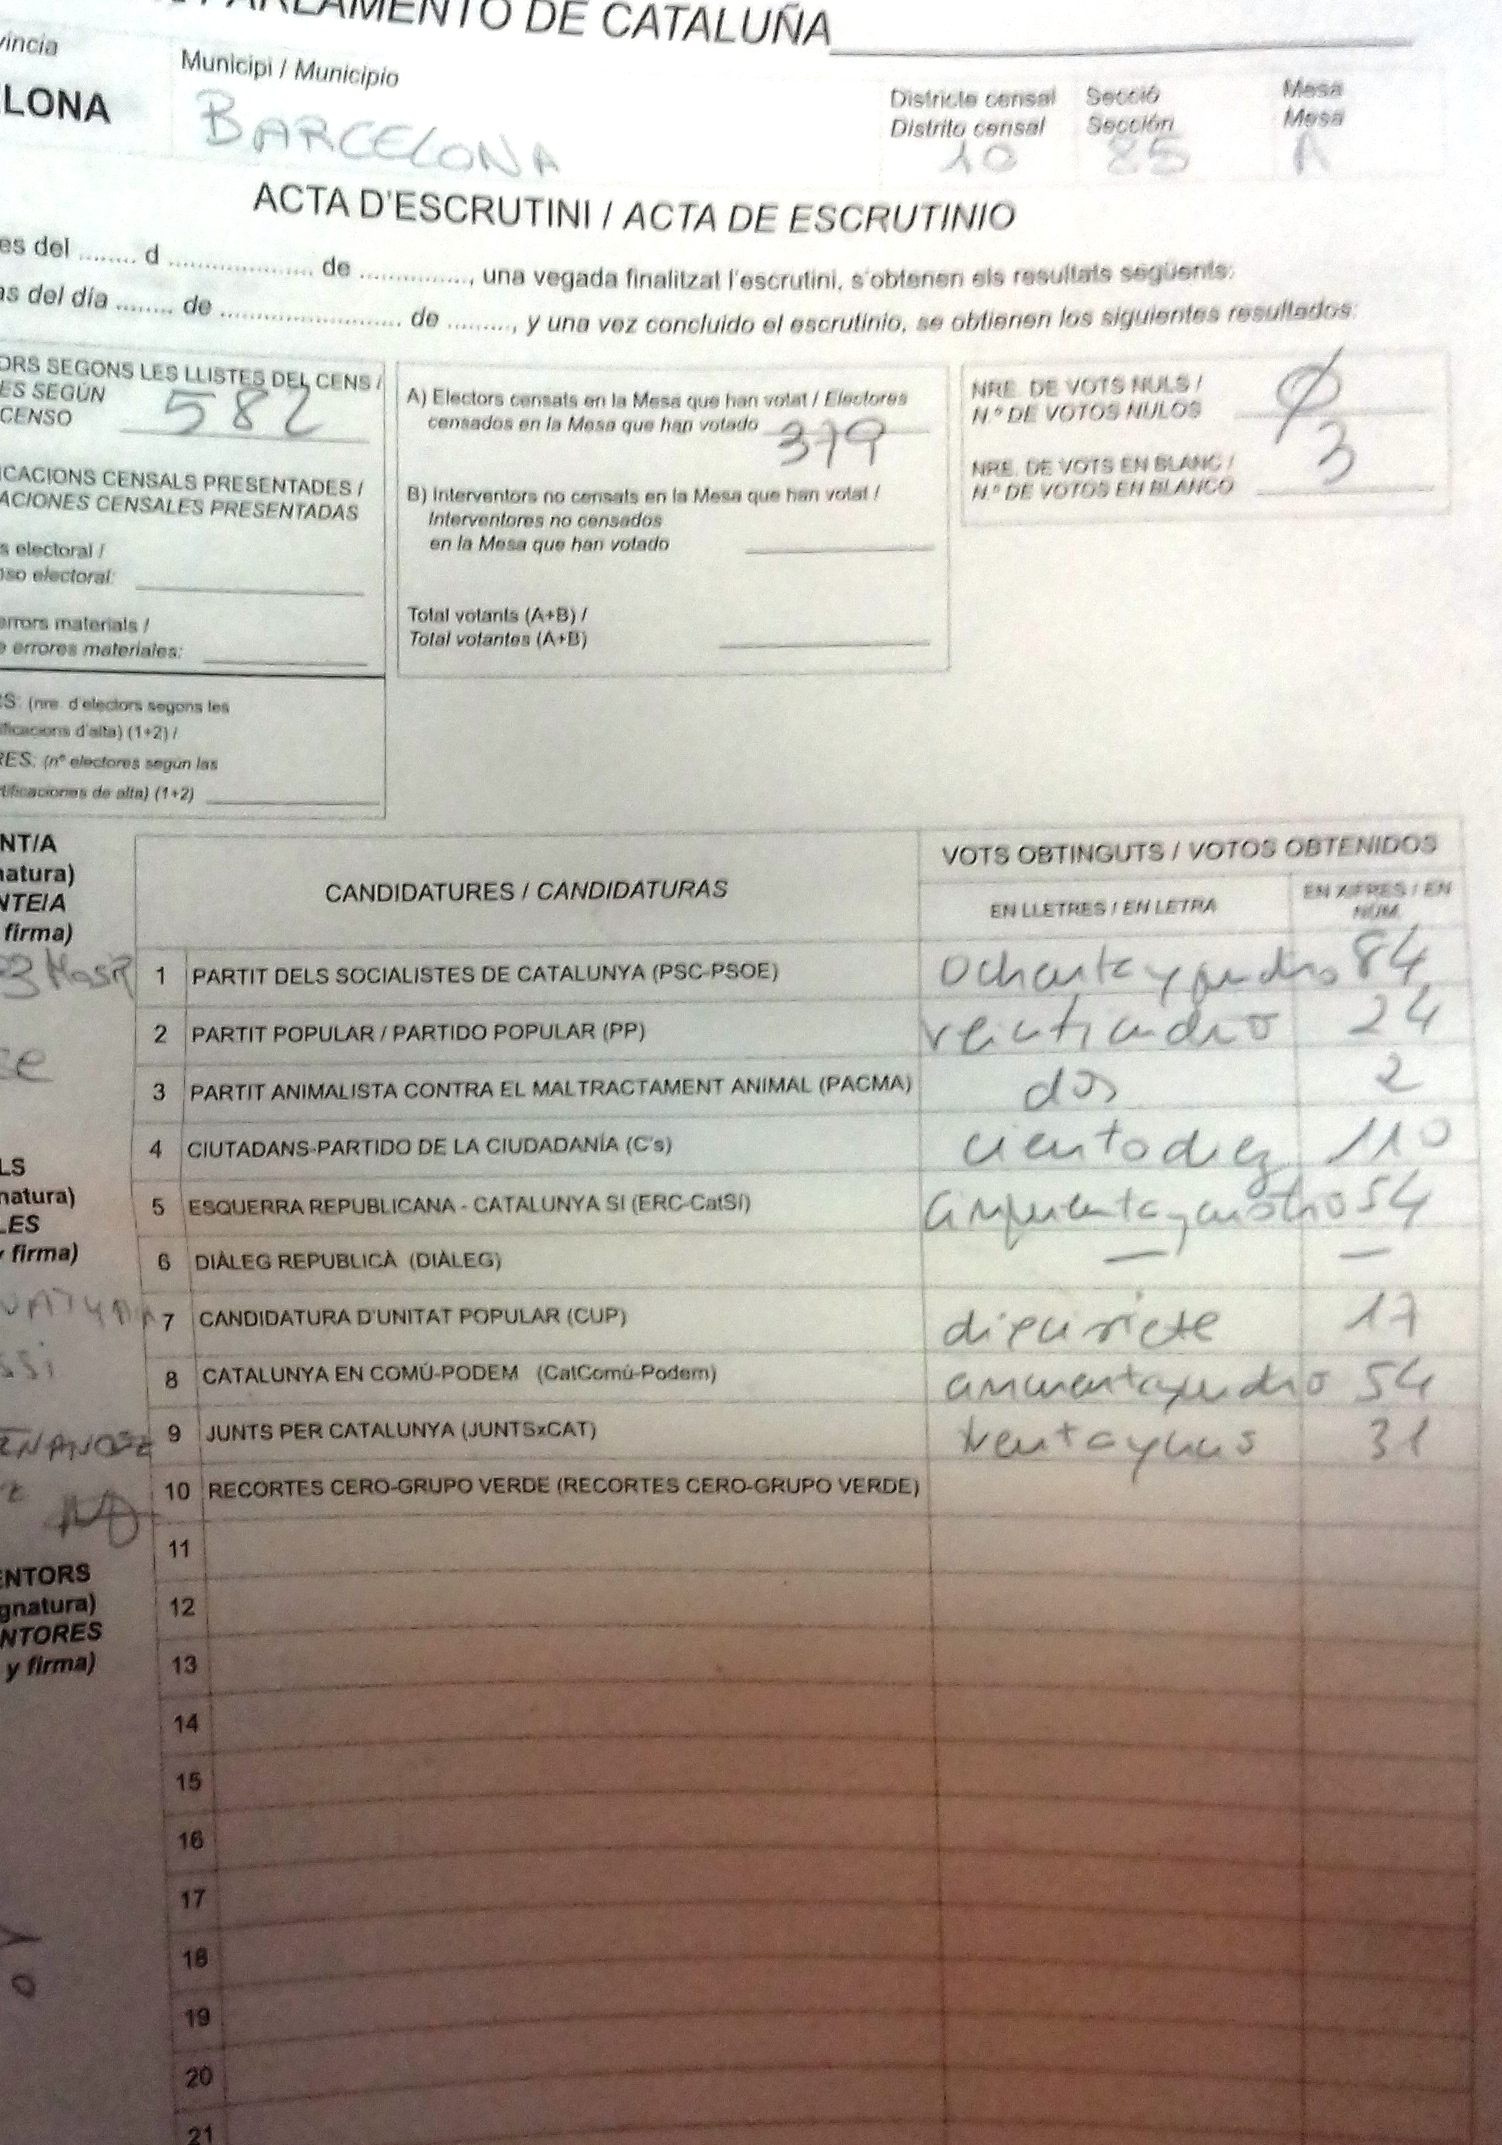 PARLAMENTO DE CATALUÑA
víncia
Municipi / Municipio
LONA
BARCELONA
Districte censal Secció Mesa
Distrito censal Sección Mesa
10 85 A
ACTA D'ESCRUTINI / ACTA DE ESCRUTINIO
es del ........ d .................... de ..............., una vegada finalitzat l'escrutini, s'obtenen els resultats següents:
as del día ........ de ......................... de ........., y una vez concluido el escrutinio, se obtienen los siguientes resultados:
ORS SEGONS LES LLISTES DEL CENS /
ES SEGÚN
CENSO 582
ICACIONS CENSALS PRESENTADES /
ACIONES CENSALES PRESENTADAS
s electoral /
nso electoral:
errors materials /
e errores materiales:
RS: (nre. d'electors segons les
ificacions d'alta) (1+2) /
RES: (nº electores según las
tificaciones de alta) (1+2)
A) Electors censats en la Mesa que han votat / Electores
censados en la Mesa que han votado 379
B) Interventors no censats en la Mesa que han votat /
Interventores no censados
en la Mesa que han votado
Total votants (A+B) /
Total votantes (A+B)
NRE. DE VOTS NULS /
N.º DE VOTOS NULOS Ø
NRE. DE VOTS EN BLANC /
N.º DE VOTOS EN BLANCO 3
NT/A
natura)
NTE/A
firma)
CANDIDATURES / CANDIDATURAS
VOTS OBTINGUTS / VOTOS OBTENIDOS
EN LLETRES / EN LETRA
EN XIFRES / EN
NÚM.
1 PARTIT DELS SOCIALISTES DE CATALUNYA (PSC-PSOE) ochenta y cuatro 84
2 PARTIT POPULAR / PARTIDO POPULAR (PP) veinticuatro 24
3 PARTIT ANIMALISTA CONTRA EL MALTRACTAMENT ANIMAL (PACMA) dos 2
4 CIUTADANS-PARTIDO DE LA CIUDADANÍA (C's) ciento diez 110
LS
natura)
LES
y firma)
5 ESQUERRA REPUBLICANA - CATALUNYA SI (ERC-CatSí) cinquenta y cuatro 54
6 DIÀLEG REPUBLICÀ (DIÀLEG) — —
7 CANDIDATURA D'UNITAT POPULAR (CUP) diecisiete 17
8 CATALUNYA EN COMÚ-PODEM (CatComú-Podem) cincuenta y cuatro 54
9 JUNTS PER CATALUNYA (JUNTSxCAT) trenta y uno 31
10 RECORTES CERO-GRUPO VERDE (RECORTES CERO-GRUPO VERDE)
ENTORS
gnatura)
NTORES
y firma)
11
12
13
14
15
16
17
18
19
20
21